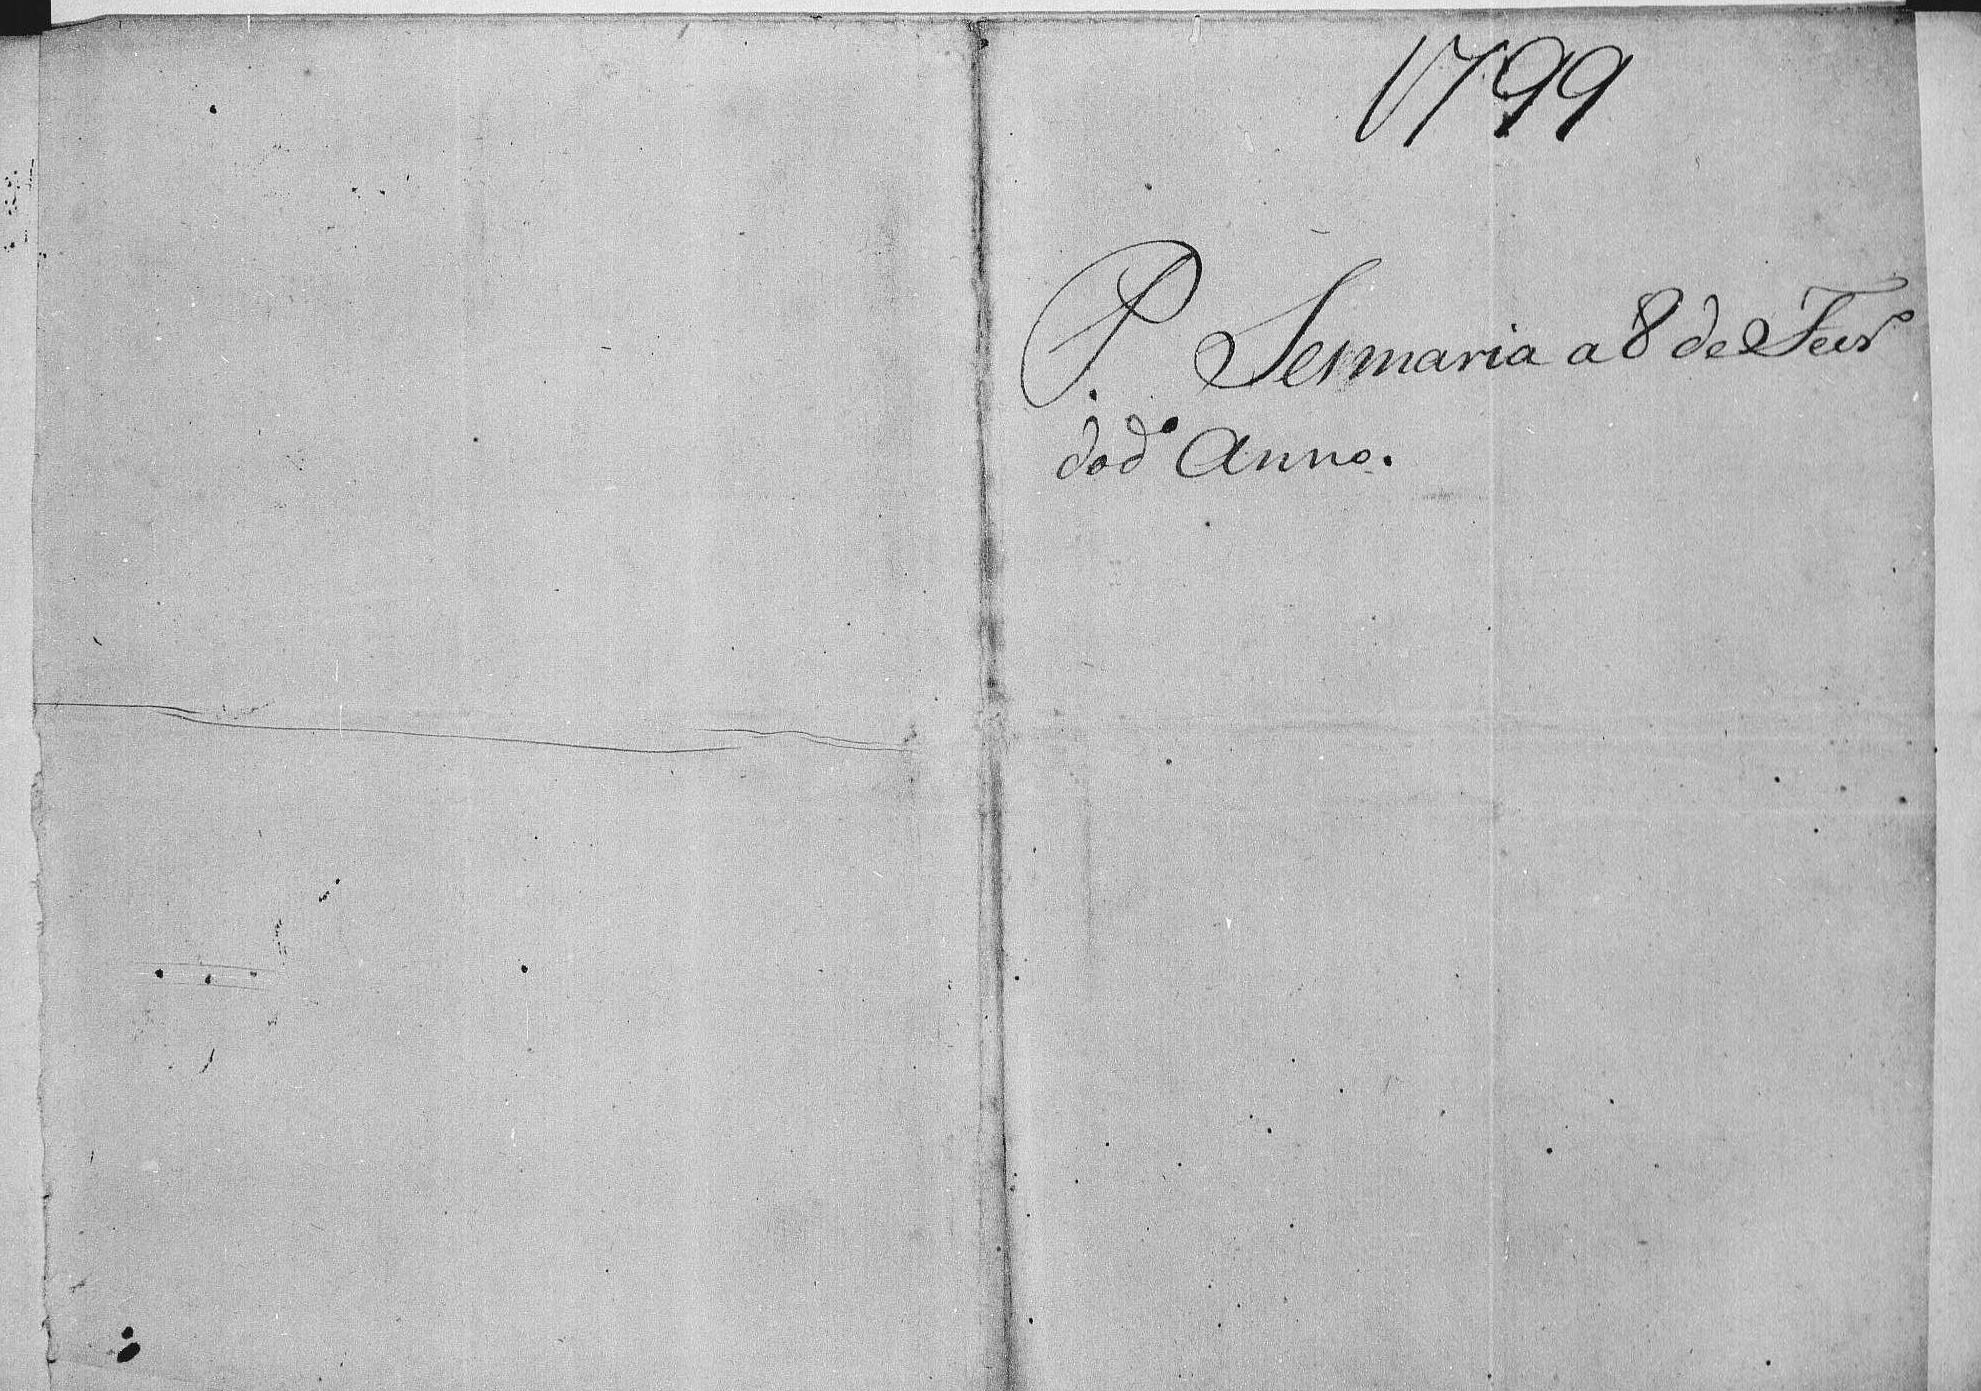 1799
P. Sesmaria a 8 de Fevr.º
do d.º Anno.